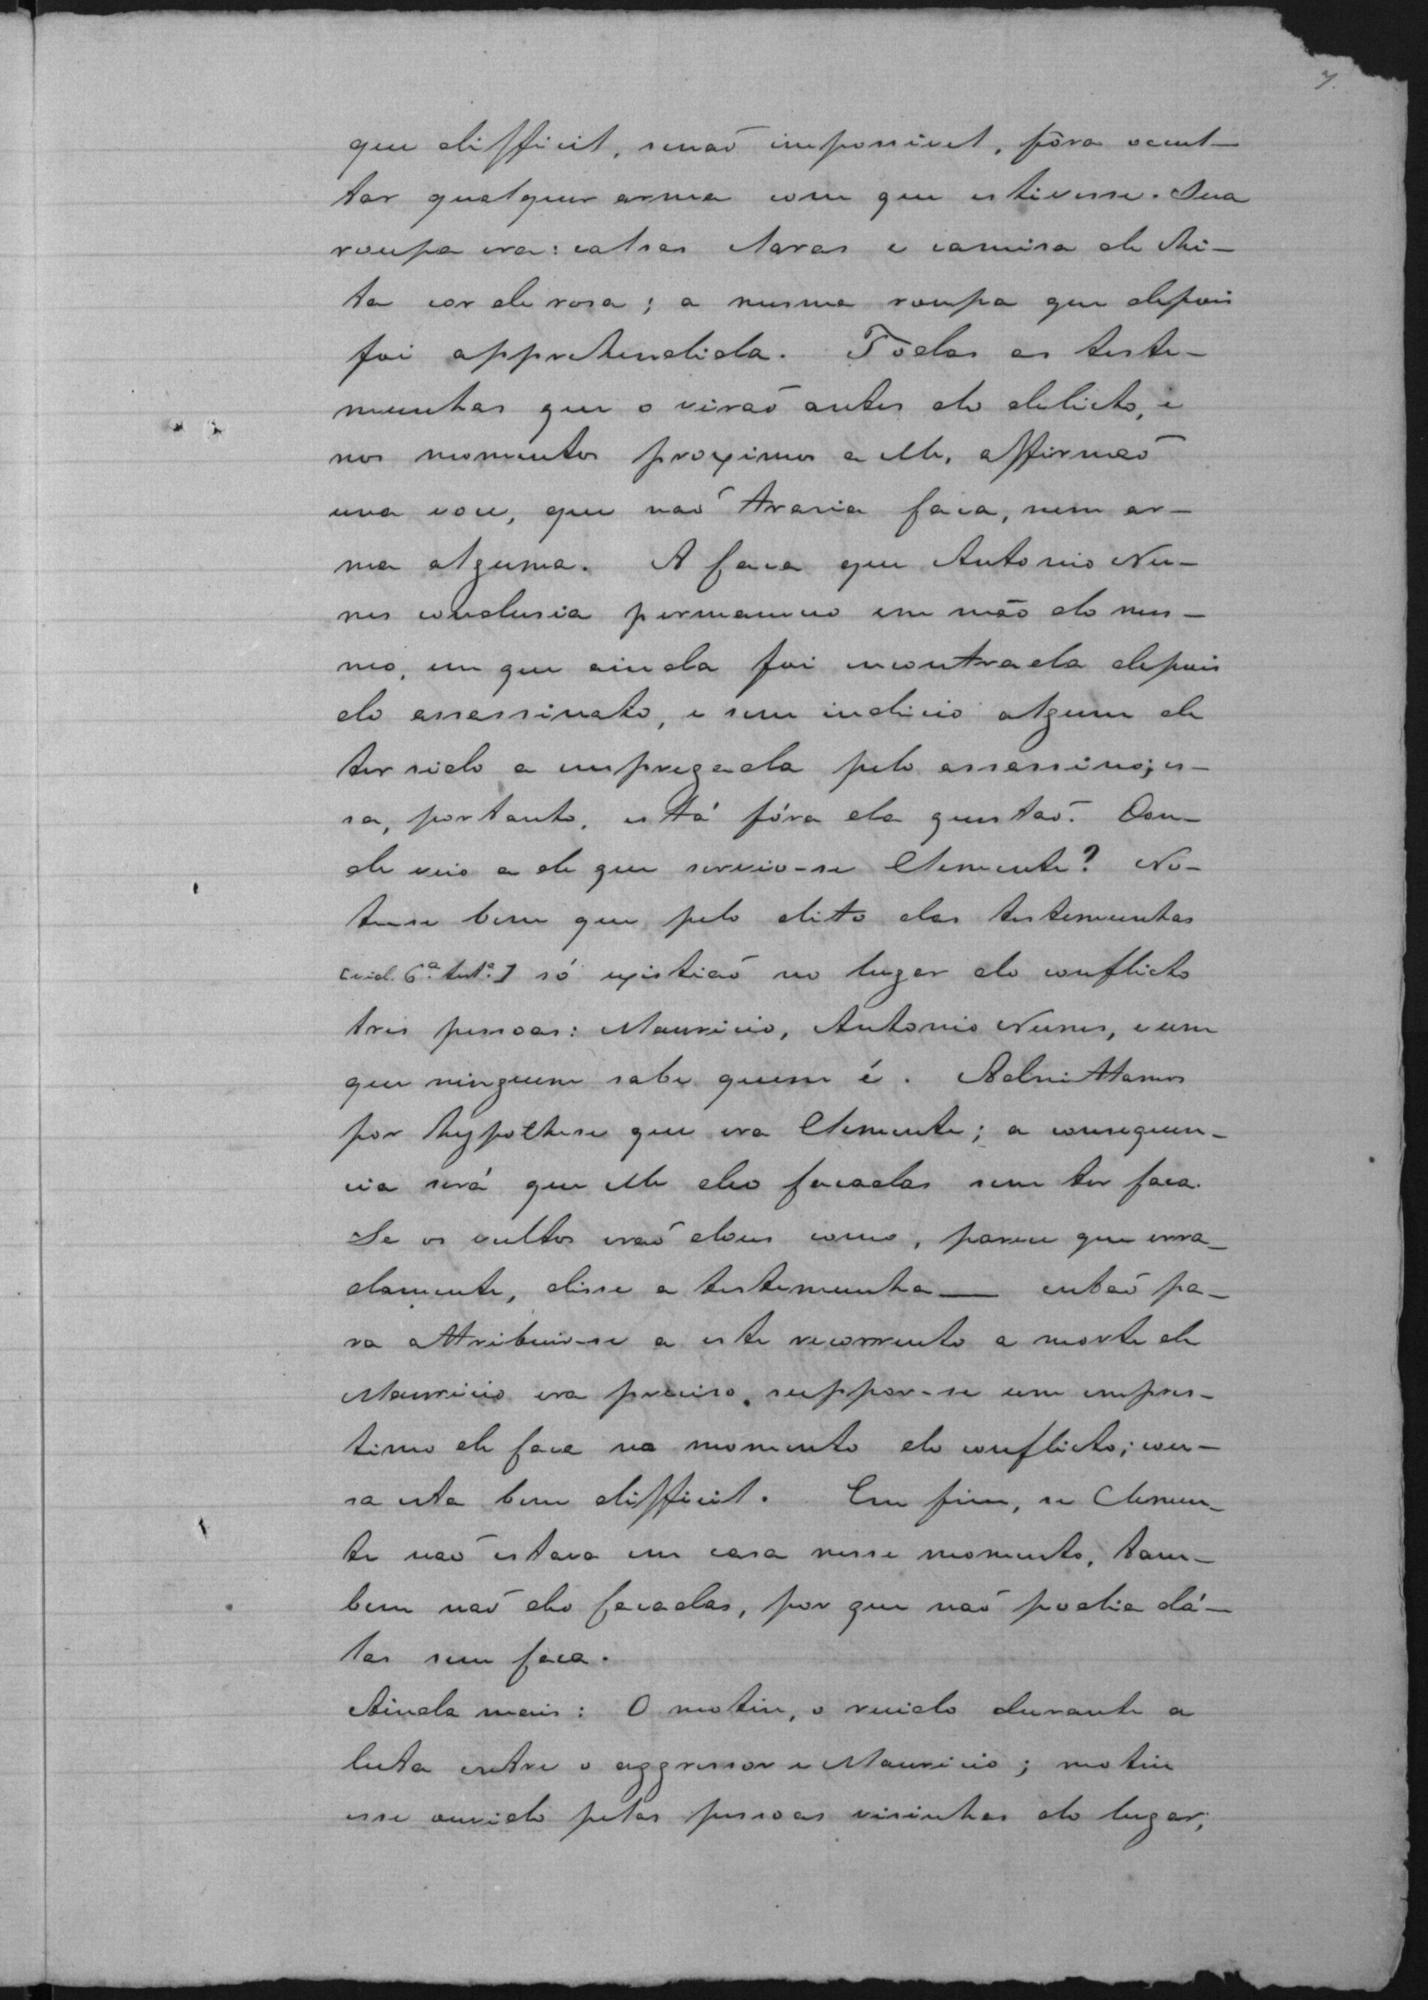 7.
que difficil, senaõ impossivel, fôra occul-
tar qualquer arma com que estivesse. Sua
roupa era: calsas claras e camisa de chi-
ta cor de rosa; a mesma roupa que depois
foi apprehendida. Todas as teste-
munhas que o viraõ antes do delicto, e
nos momentos proximos a elle, affirmaõ
una voce, que naõ trasia faca, nem ar-
ma alguma. A faca que Antonio Nu-
nes condusia permaneceo em mão do mes-
mo, em que ainda foi encontrada depois
do assassinato, e sem indicio algum de
ter sido a empregada pelo assassino; es-
sa, portanto, está fóra da questaõ. Don-
de veio a de que servio-se Clemente? No-
te-se bem que pelo dito das testemunhas
[vid. 6ª. testª.] só existiaõ no lugar do conflicto
tres pessoas: Mauricio, Antonio Nunes, e um
que ninguem sabe quem é. Admittamos
por hypothese que era Clemente; a consequen-
cia será que elle deo facadas sem ter faca.
Se os vultos eraõ dous como, parece que erra-
damente, disse a testemunha — entaõ pa-
ra attribuir-se a este recorrente a morte de
Mauricio era preciso suppor-se um empres-
timo de faca no momento do conflicto; cou-
sa esta bem difficil. Em fim, se Clemen-
te naõ estava em casa nesse momento, tam-
bem naõ deo facadas, por que naõ podia dá-
las sem faca.
Ainda mais: O motim, o ruido durante a
luta entre o aggressor e Mauricio; motim
esse ouvido pelas pessoas visinhas do lugar;